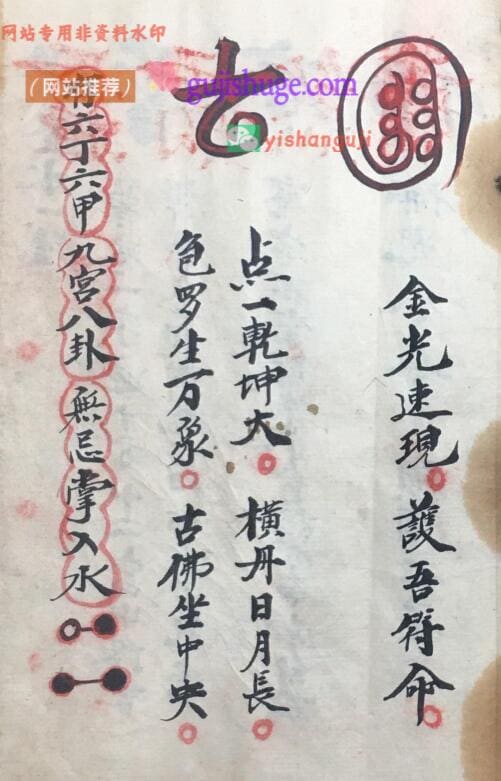 网站专用非资料水印
（网站推荐）
gujishuge.com
yishanguji
金光速現。護吾命。
点一乾坤大。橫丹日月長。
包罗生万象。古佛坐中央
六丁六甲九宫八卦無忌掌入水